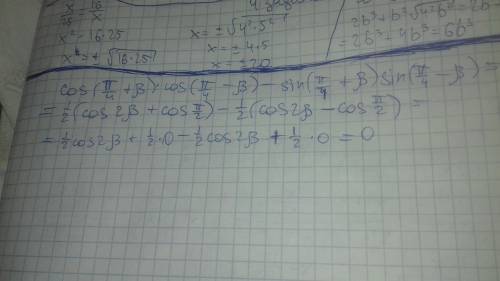 x/25 = 16/x
x² = 16·25
x = ±√16·25
x = ±√4²·5²
x = ±4·5
x = ±20
= 2b³ + 4b³ = 6b³
cos(π/4 + β)·cos(π/4 − β) − sin(π/4 + β)sin(π/4 − β) =
= ½(cos2β + cos π/2) − ½(cos2β − cos π/2) =
= ½cos2β + ½·0 − ½cos2β + ½·0 = 0